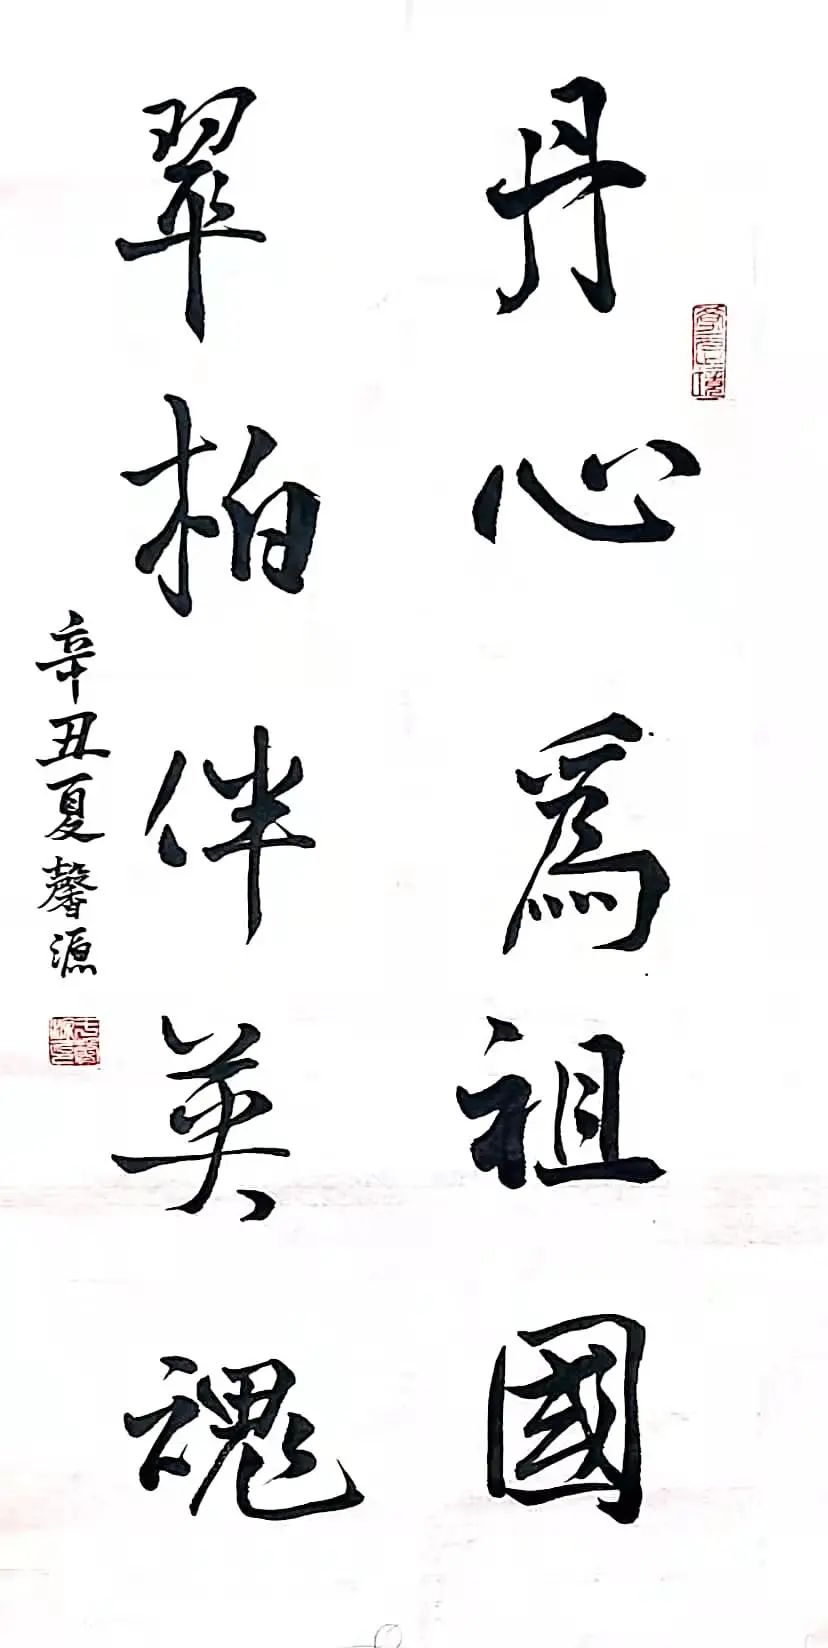 丹心為祖國
翠柏伴英魂
辛丑夏馨源